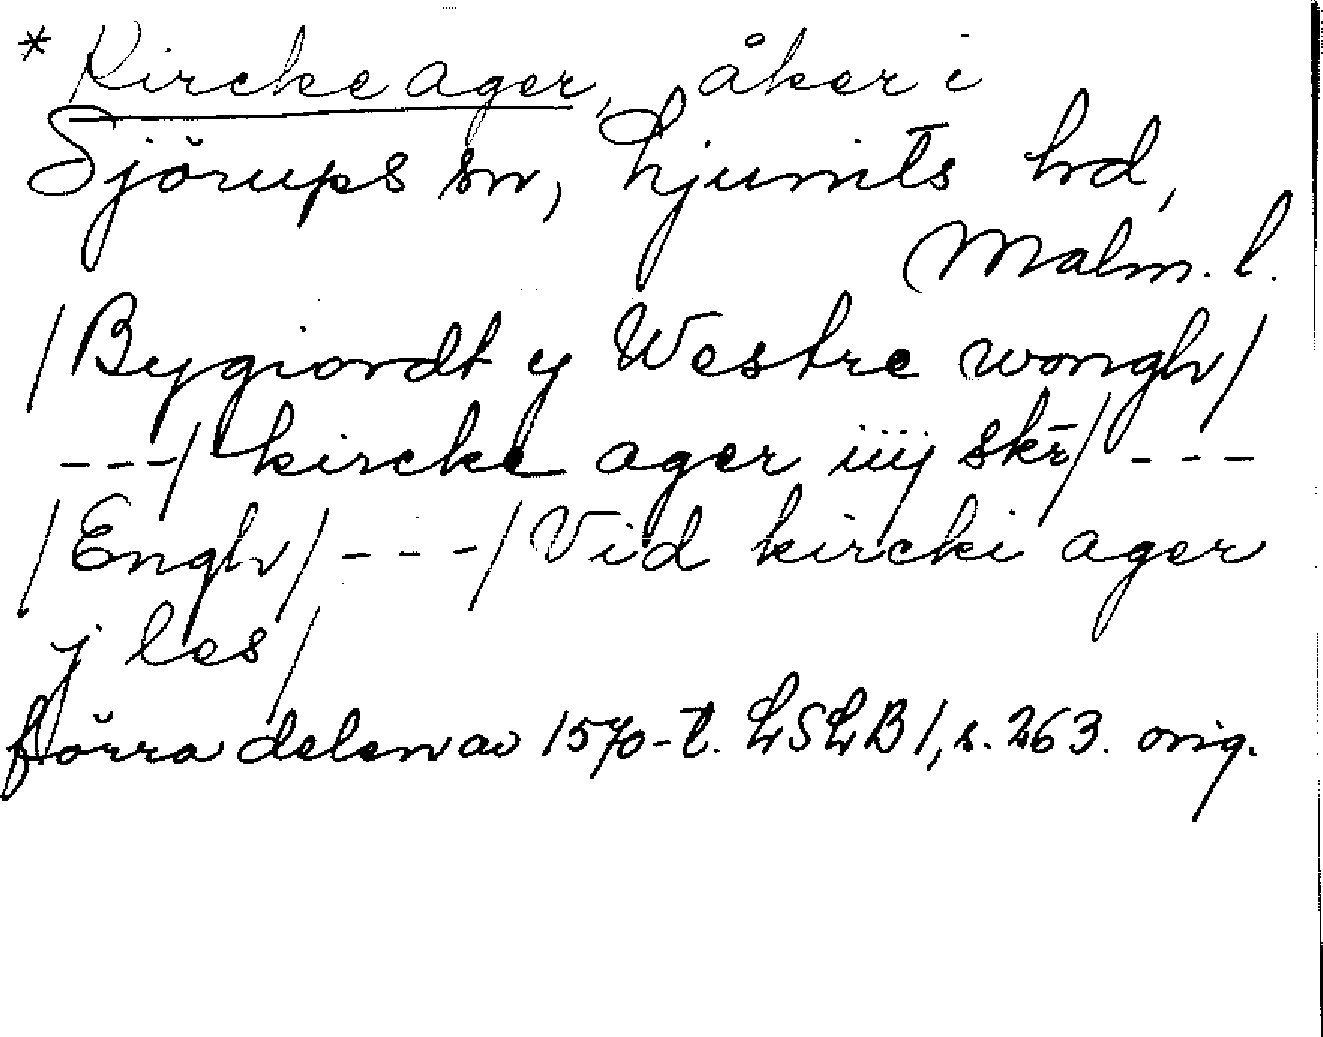 * Kircke ager, åker i
Sjörups sn, Ljunits hd,
Malm. l.
/Bygiordt y Westre wongh/
---/ kircke ager iiij skr̄/ ---
/Engh/ ---/ Vid kircki ager
j les/
förra delen av 1570-t. LSLB 1, s. 263. orig.